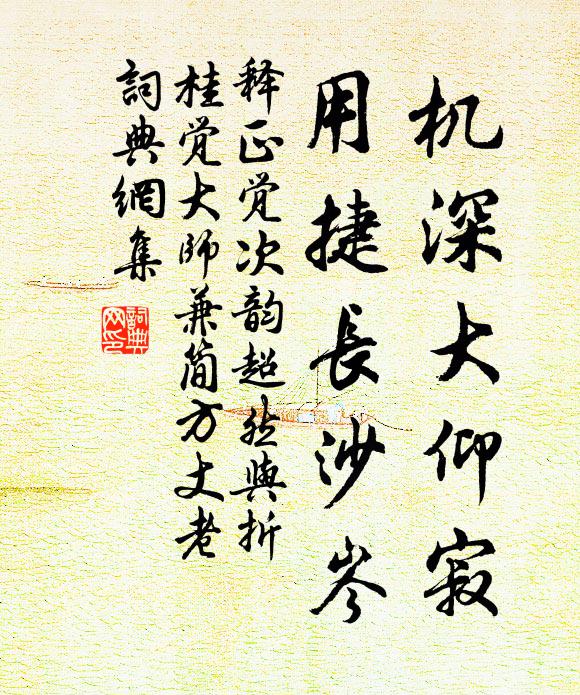 机深大仰寂
用捷長沙岑
释正觉次韵超然與折
桂觉大師兼简方丈老
詞典網集
詞典
网印